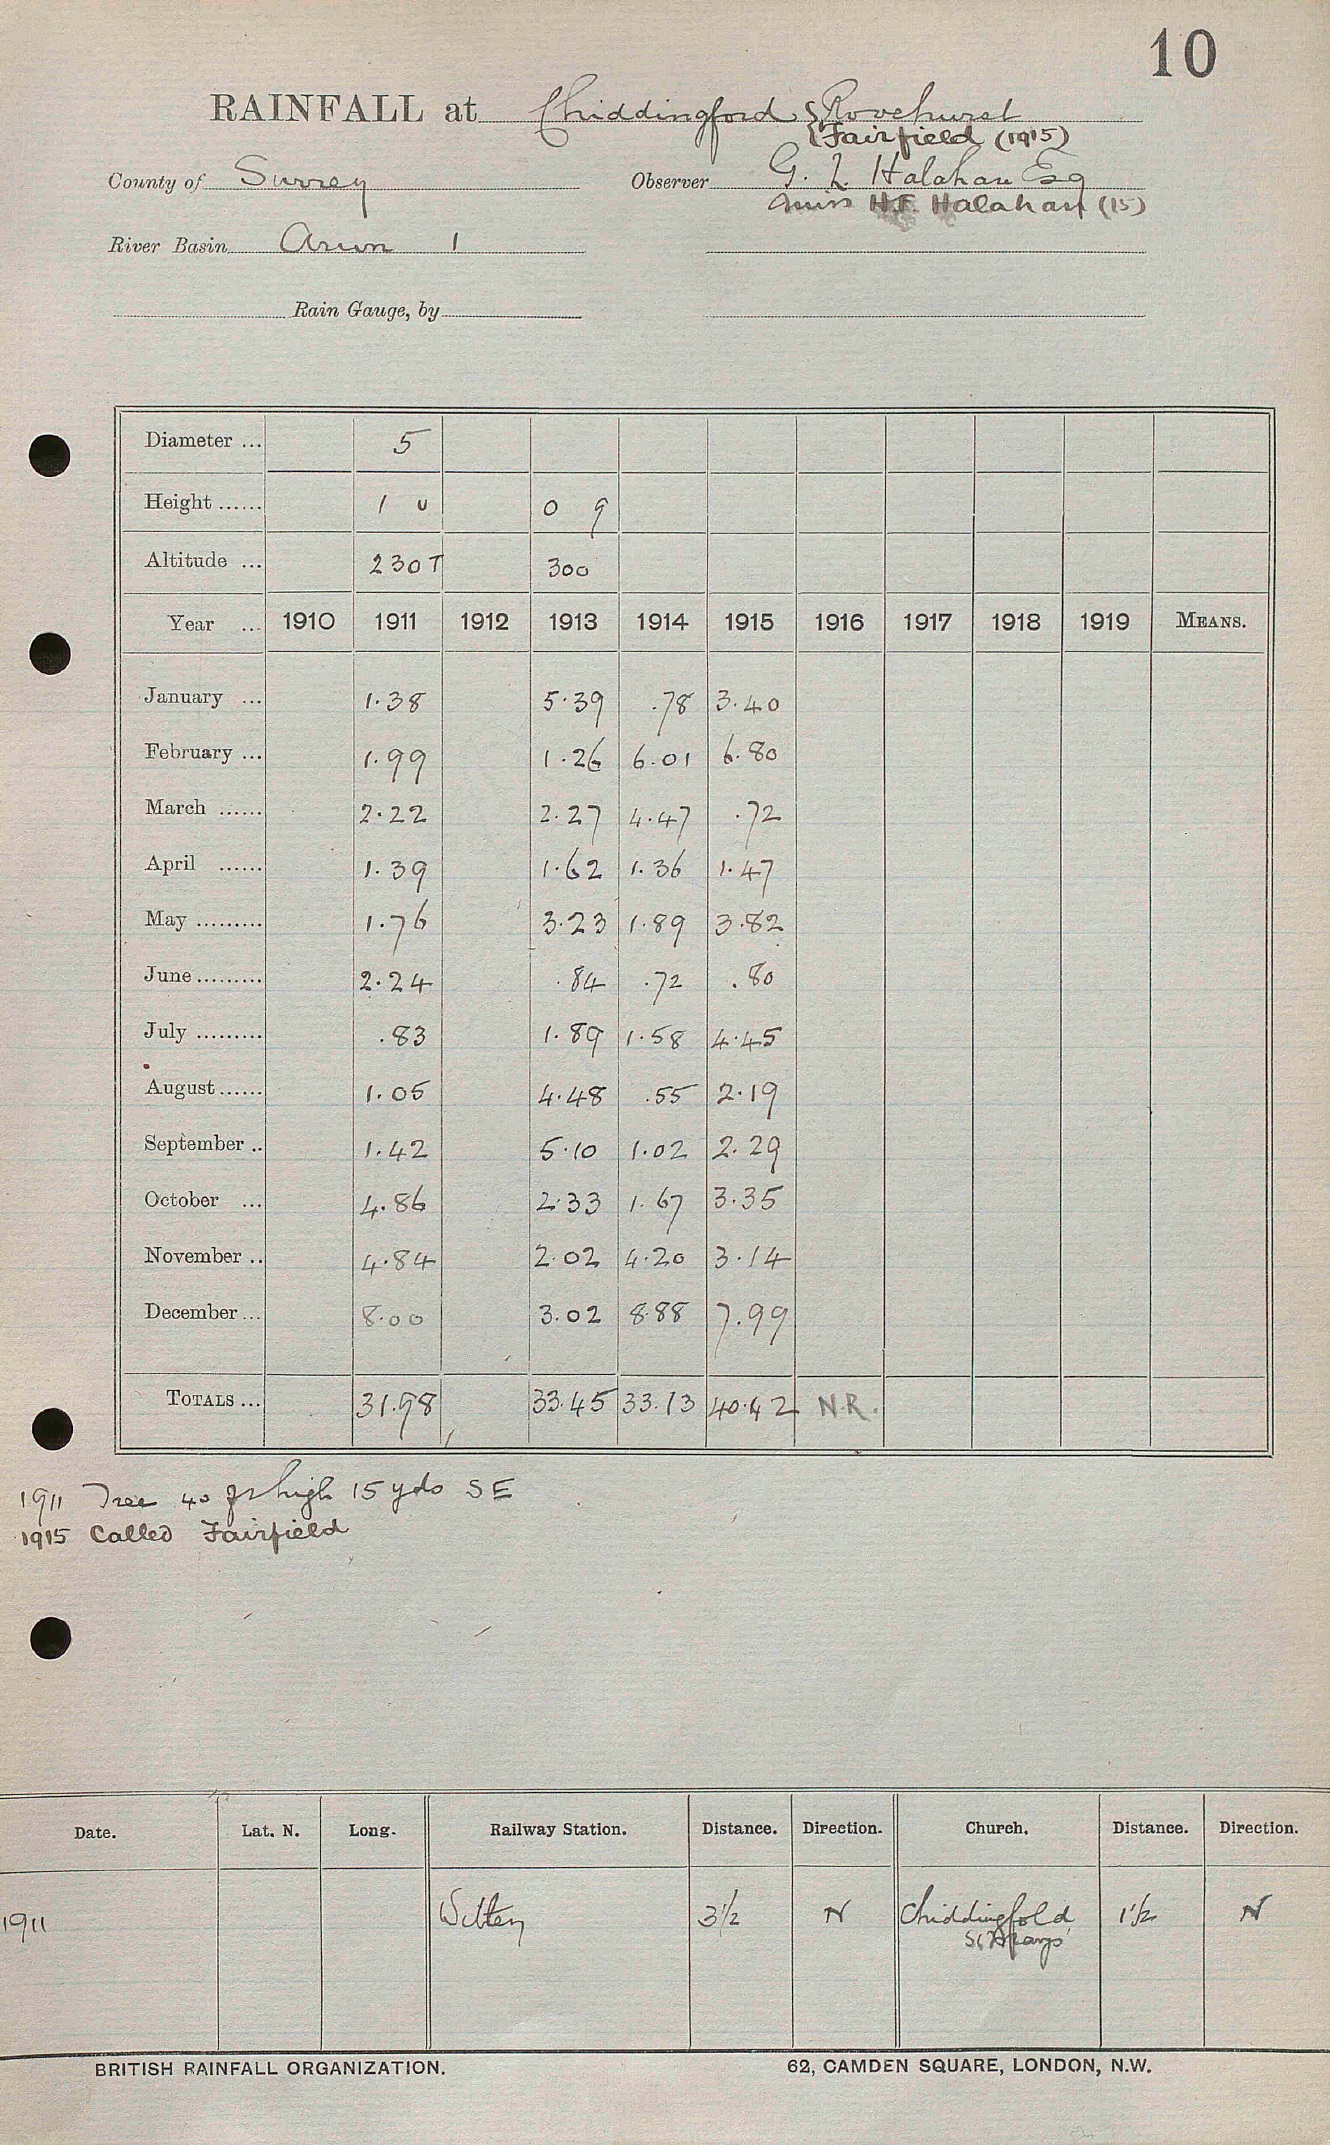 10
RAINFALL at Chiddingford { Rovehurst
{ Fairfield (1915)
County of Surrey Observer G. L. Halahan Esq
Miss H.F. Halahan (15)
River Basin Arun 1
Rain Gauge, by
Diameter ... 5
Height ...... 1 0 0 9
Altitude ... 230T 300
Year ... 1910 1911 1912 1913 1914 1915 1916 1917 1918 1919 MEANS.
January ... 1.38 5.39 .78 3.40
February ... 1.99 1.26 6.01 6.80
March ...... 2.22 2.27 4.47 .72
April ...... 1.39 1.62 1.36 1.47
May ......... 1.76 3.23 1.89 3.82
June ......... 2.24 .84 .72 .80
July ......... .83 1.89 1.58 4.45
August ...... 1.05 4.48 .55 2.19
September .. 1.42 5.10 1.02 2.29
October ... 4.86 2.33 1.67 3.35
November .. 4.84 2.02 4.20 3.14
December ... 8.00 3.02 8.88 7.99
TOTALS ... 31.98 33.45 33.13 40.42 N.R.
1911 Tree 40 ft high 15 yds SE
1915 Called Fairfield
Date. Lat. N. Long. Railway Station. Distance. Direction. Church. Distance. Direction.
1911 Witley 3½ N Chiddingfold 1½ N
St Marys
BRITISH RAINFALL ORGANIZATION. 62, CAMDEN SQUARE, LONDON, N.W.